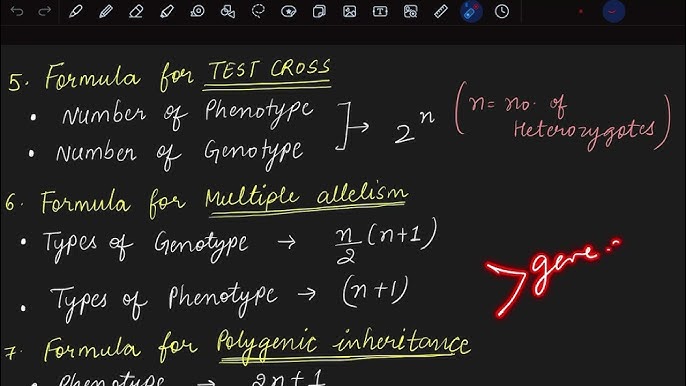 5. Formula for TEST CROSS
• Number of Phenotype
• Number of Genotype
] → 2^n (n = no. of Heterozygotes)
6. Formula for Multiple allelism
• Types of Genotype → n/2 (n+1)
• Types of Phenotype → (n+1)
> gene..
7. Formula for Polygenic inheritance
• Phenotype → 2n+1